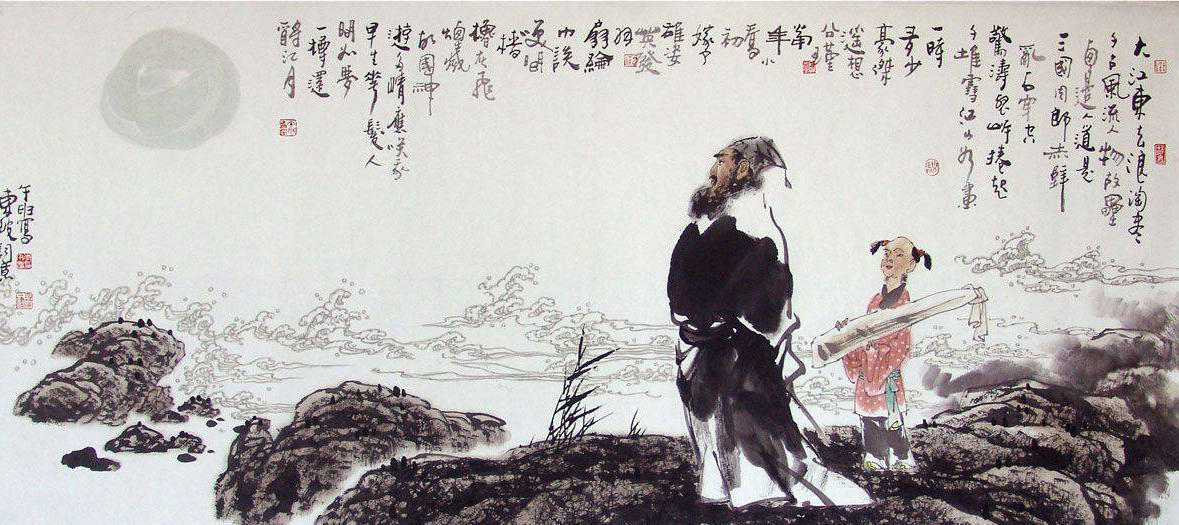 大江東去浪淘盡
千古風流人物故壘
西邊人道是
三國周郎赤壁
亂石穿空
驚濤拍岸捲起
千堆雪江山如畫
一時
多少
豪傑
遥想
公瑾
當
年小
喬
初
嫁了
雄姿
英發
羽
扇綸
巾談
笑間
檣
櫓灰飛
煙滅
故國神
遊多情應笑我
早生華髮人
間如夢
一樽還
酹江月
寫
東坡詞意